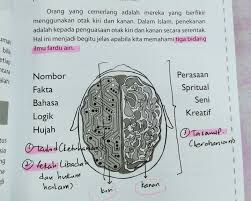 Orang yang cemerlang adalah mereka yang berfikir
menggunakan otak kiri dan kanan. Dalam Islam, penekanan
adalah kepada penguasaan otak kiri dan kanan secara serentak.
Hal ini menjadi begitu jelas apabila kita memahami tiga bidang
ilmu fardu ain.
Nombor
Fakta
Bahasa
Logik
Hujah
Perasaan
Spritual
Seni
Kreatif
① Tauhid
② Fekah (ibadah
dan hukum
hakam)
③ Tasawuf
kiri
kanan